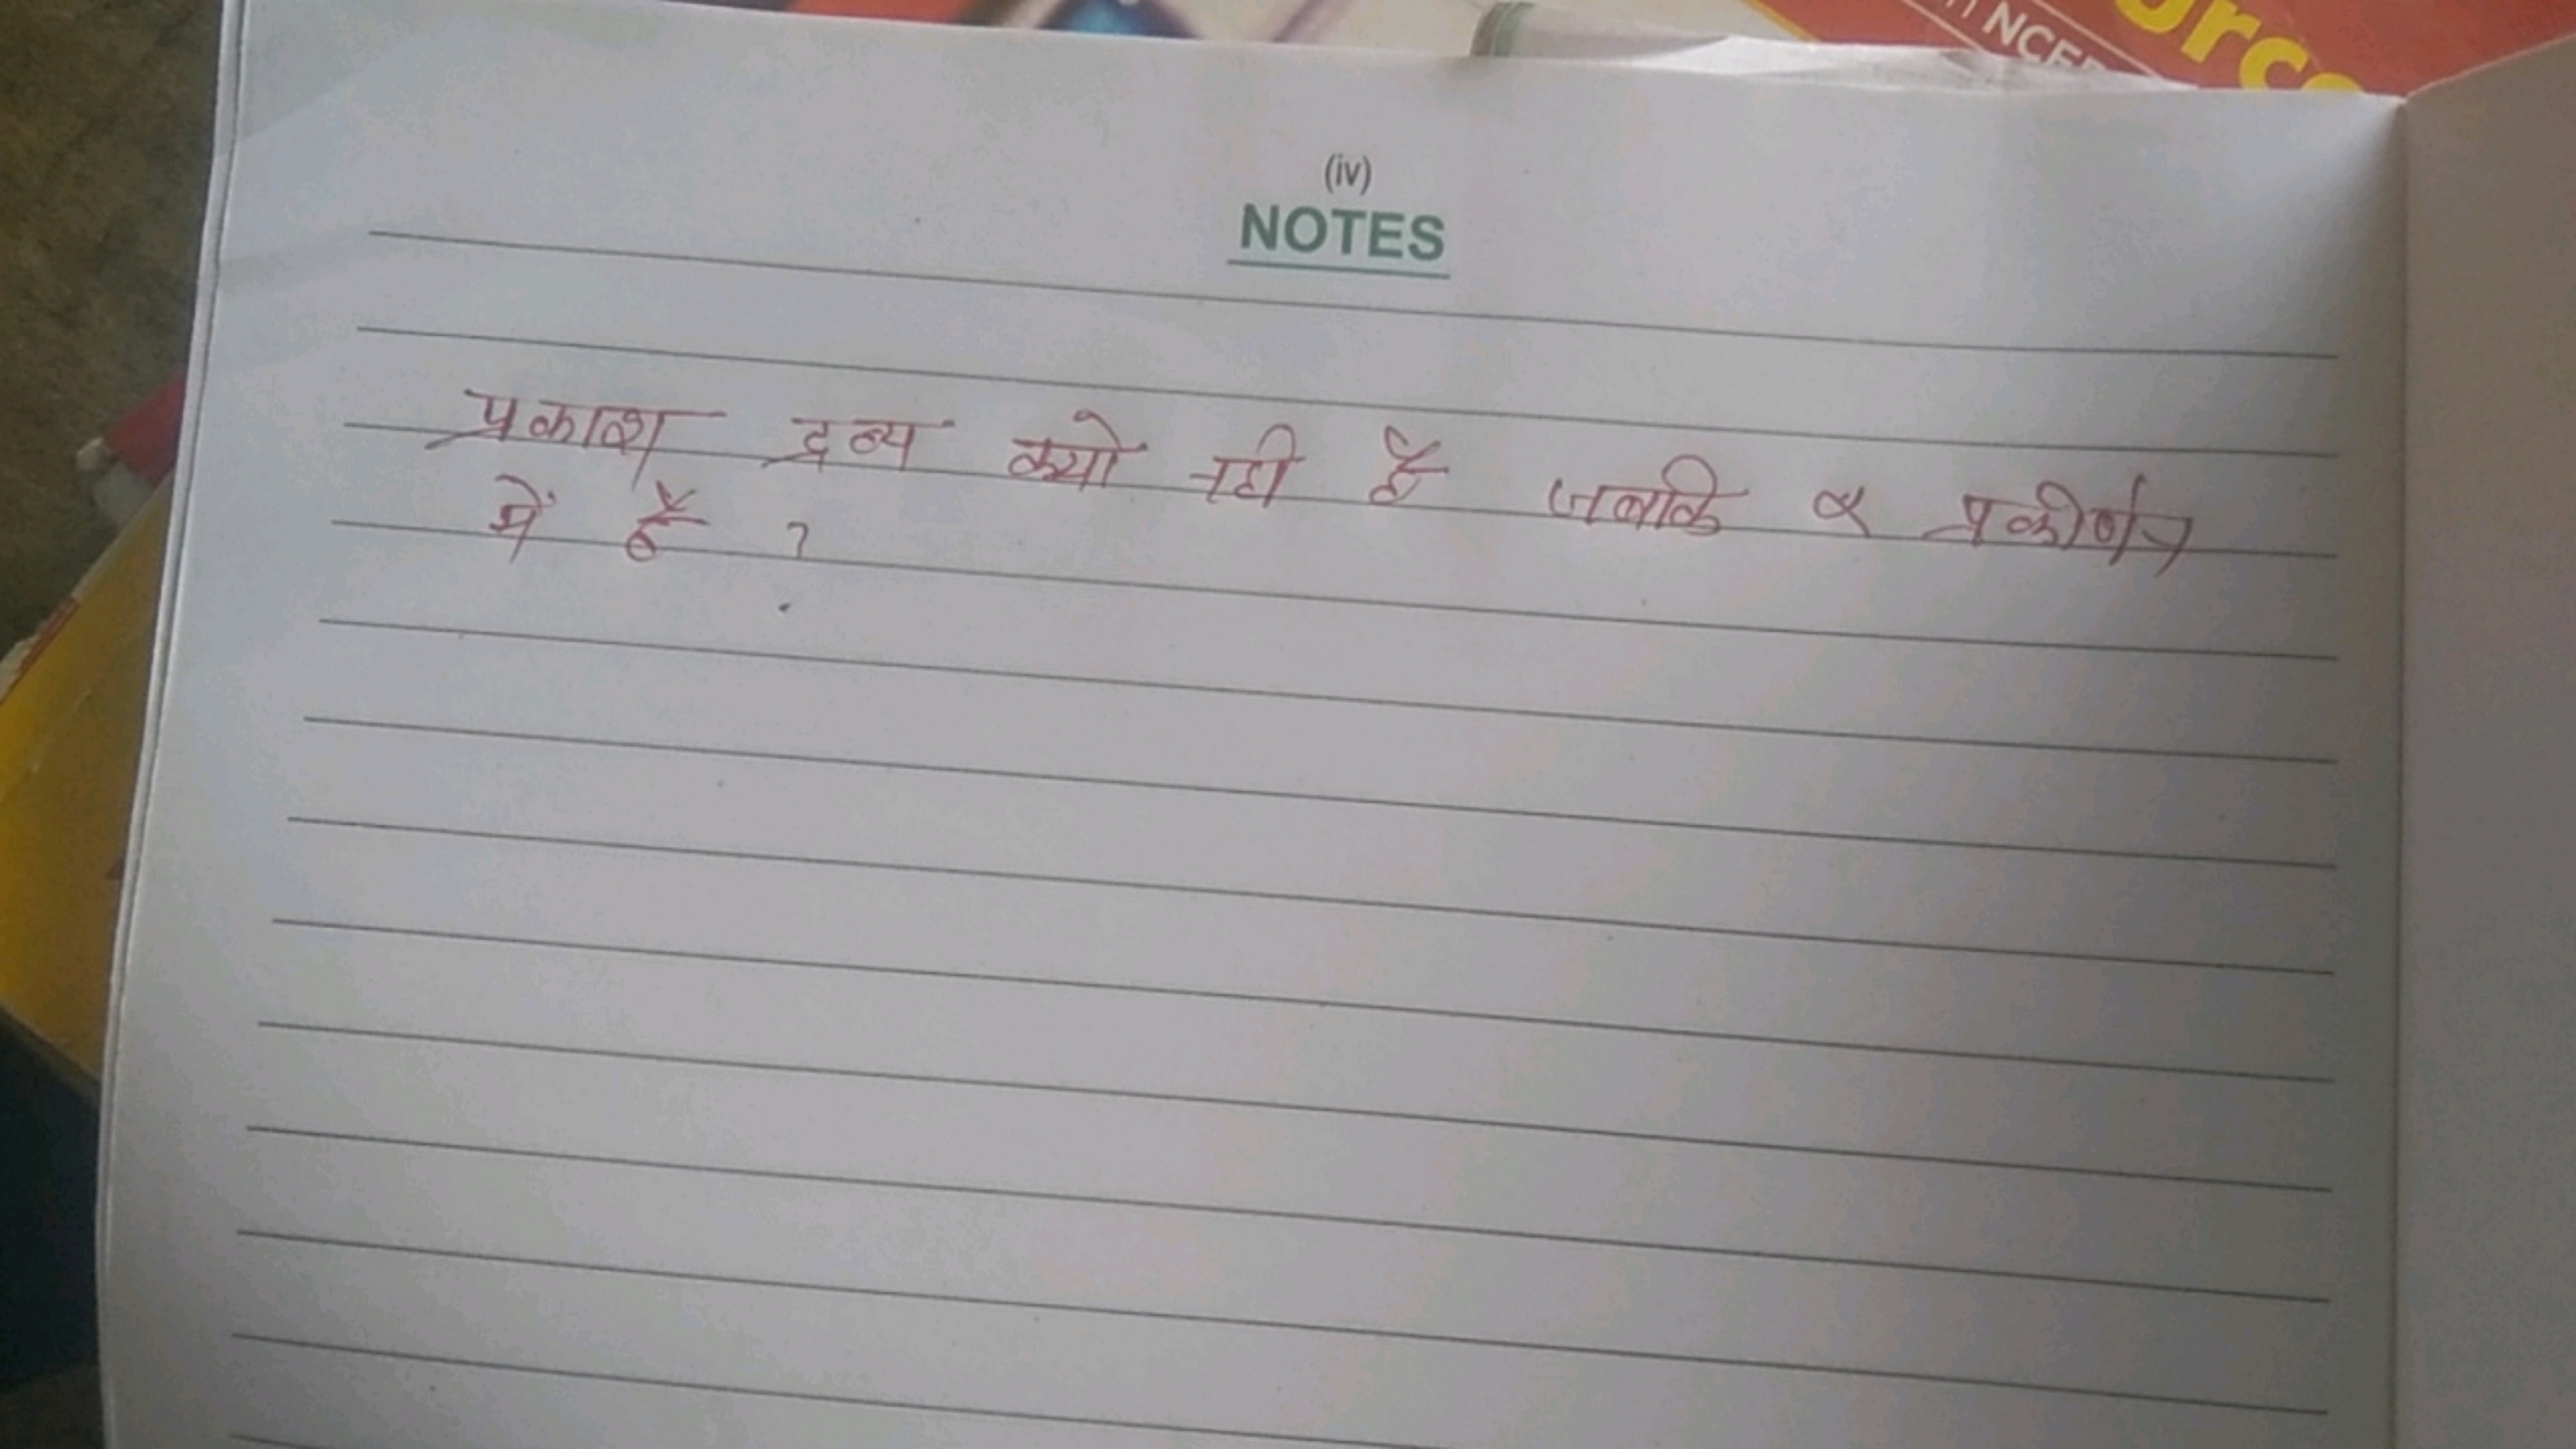 NCE
urce
(iv)
NOTES
प्रकाश द्रव्य क्यो नही है जबकि α प्रकीर्णन
में है ?